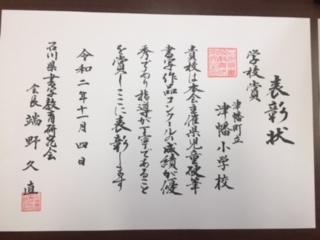 表彰状
学校賞
津幡町立
津幡小学校
貴校は本会主催県児童硬筆
書写作品コンクールの成績が優
秀であり指導が丁寧であること
を賞しここに表彰します
令和二年十一月四日
石川県書写教育研究会
会長 端野久直